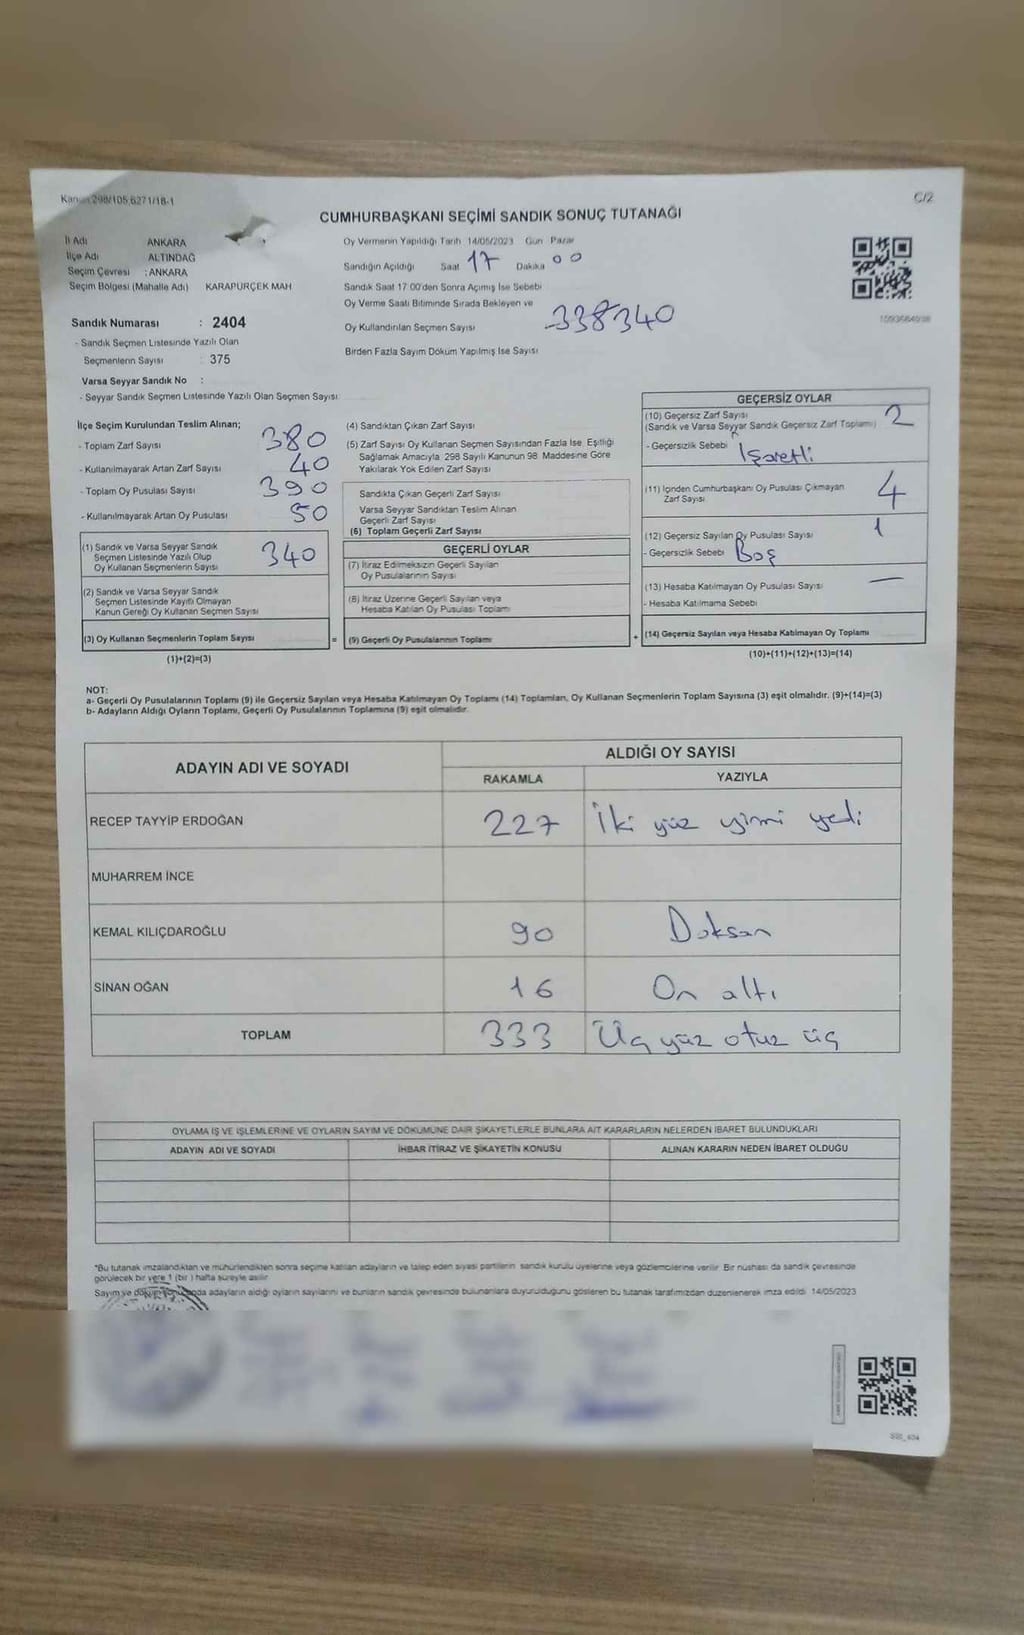 Kanun 298/105,6271/18-1
C/2
CUMHURBAŞKANI SEÇİMİ SANDIK SONUÇ TUTANAĞI
İl Adı ANKARA
İlçe Adı ALTINDAĞ
Seçim Çevresi : ANKARA
Seçim Bölgesi (Mahalle Adı) KARAPÜRÇEK MAH
Sandık Numarası : 2404
- Sandık Seçmen Listesinde Yazılı Olan
Seçmenlerin Sayısı : 375
Varsa Seyyar Sandık No :
- Seyyar Sandık Seçmen Listesinde Yazılı Olan Seçmen Sayısı:
Oy Vermenin Yapıldığı Tarih 14/05/2023 Gün Pazar
Sandığın Açıldığı Saat 17 Dakika 00
Sandık Saat 17:00'den Sonra Açımış İse Sebebi
Oy Verme Saati Bitiminde Sırada Bekleyen ve
Oy Kullandırılan Seçmen Sayısı 338340
Birden Fazla Sayım Döküm Yapılmış İse Sayısı
İlçe Seçim Kurulundan Teslim Alınan;
- Toplam Zarf Sayısı 380
- Kullanılmayarak Artan Zarf Sayısı 40
- Toplam Oy Pusulası Sayısı 390
- Kullanılmayarak Artan Oy Pusulası 50
(1) Sandık ve Varsa Seyyar Sandık
Seçmen Listesinde Yazılı Olup
Oy Kullanan Seçmenlerin Sayısı 340
(2) Sandık ve Varsa Seyyar Sandık
Seçmen Listesinde Kayıtlı Olmayan
Kanun Gereği Oy Kullanan Seçmen Sayısı
(3) Oy Kullanan Seçmenlerin Toplam Sayısı
=
(1)+(2)=(3)
(4) Sandıktan Çıkan Zarf Sayısı
(5) Zarf Sayısı Oy Kullanan Seçmen Sayısından Fazla İse, Eşitliği
Sağlamak Amacıyla, 298 Sayılı Kanunun 98. Maddesine Göre
Yakılarak Yok Edilen Zarf Sayısı
Sandıkta Çıkan Geçerli Zarf Sayısı
Varsa Seyyar Sandıktan Teslim Alınan
Geçerli Zarf Sayısı
(6) Toplam Geçerli Zarf Sayısı
GEÇERLİ OYLAR
(7) İtiraz Edilmeksizin Geçerli Sayılan
Oy Pusulalarının Sayısı
(8) İtiraz Üzerine Geçerli Sayılan veya
Hesaba Katılan Oy Pusulası Toplamı
(9) Geçerli Oy Pusulalarının Toplamı
+
GEÇERSİZ OYLAR
(10) Geçersiz Zarf Sayısı 2
(Sandık ve Varsa Seyyar Sandık Geçersiz Zarf Toplamı)
- Geçersizlik Sebebi İşaretli
(11) İçinden Cumhurbaşkanı Oy Pusulası Çıkmayan
Zarf Sayısı 4
(12) Geçersiz Sayılan Oy Pusulası Sayısı 1
- Geçersizlik Sebebi Boş
(13) Hesaba Katılmayan Oy Pusulası Sayısı —
- Hesaba Katılmama Sebebi
(14) Geçersiz Sayılan veya Hesaba Katılmayan Oy Toplamı
(10)+(11)+(12)+(13)=(14)
NOT:
a- Geçerli Oy Pusulalarının Toplamı (9) ile Geçersiz Sayılan veya Hesaba Katılmayan Oy Toplamı (14) Toplamları, Oy Kullanan Seçmenlerin Toplam Sayısına (3) eşit olmalıdır. (9)+(14)=(3)
b- Adayların Aldığı Oyların Toplamı, Geçerli Oy Pusulalarının Toplamına (9) eşit olmalıdır.
ADAYIN ADI VE SOYADI
ALDIĞI OY SAYISI
RAKAMLA YAZIYLA
RECEP TAYYİP ERDOĞAN 227 İki yüz yirmi yedi
MUHARREM İNCE
KEMAL KILIÇDAROĞLU 90 Doksan
SİNAN OĞAN 16 On altı
TOPLAM 333 Üç yüz otuz üç
OYLAMA İŞ VE İŞLEMLERİNE VE OYLARIN SAYIM VE DÖKÜMÜNE DAİR ŞİKAYETLERLE BUNLARA AİT KARARLARIN NELERDEN İBARET BULUNDUKLARI
ADAYIN ADI VE SOYADI İHBAR İTİRAZ VE ŞİKAYETİN KONUSU ALINAN KARARIN NEDEN İBARET OLDUĞU
"Bu tutanak imzalandıktan ve mühürlendikten sonra seçime katılan adayların ve talep eden siyasi partilerin sandık kurulu üyelerine veya gözlemcilerine verilir. Bir nüshası da sandık çevresinde
görülecek bir yere 1 (bir) hafta süreyle asılır.
Sayım ve döküm adayların aldığı oyların sayılarını ve bunların sandık çevresinde bulunanlara duyurulduğunu gösteren bu tutanak tarafımızdan düzenlenerek imza edildi. 14/05/2023